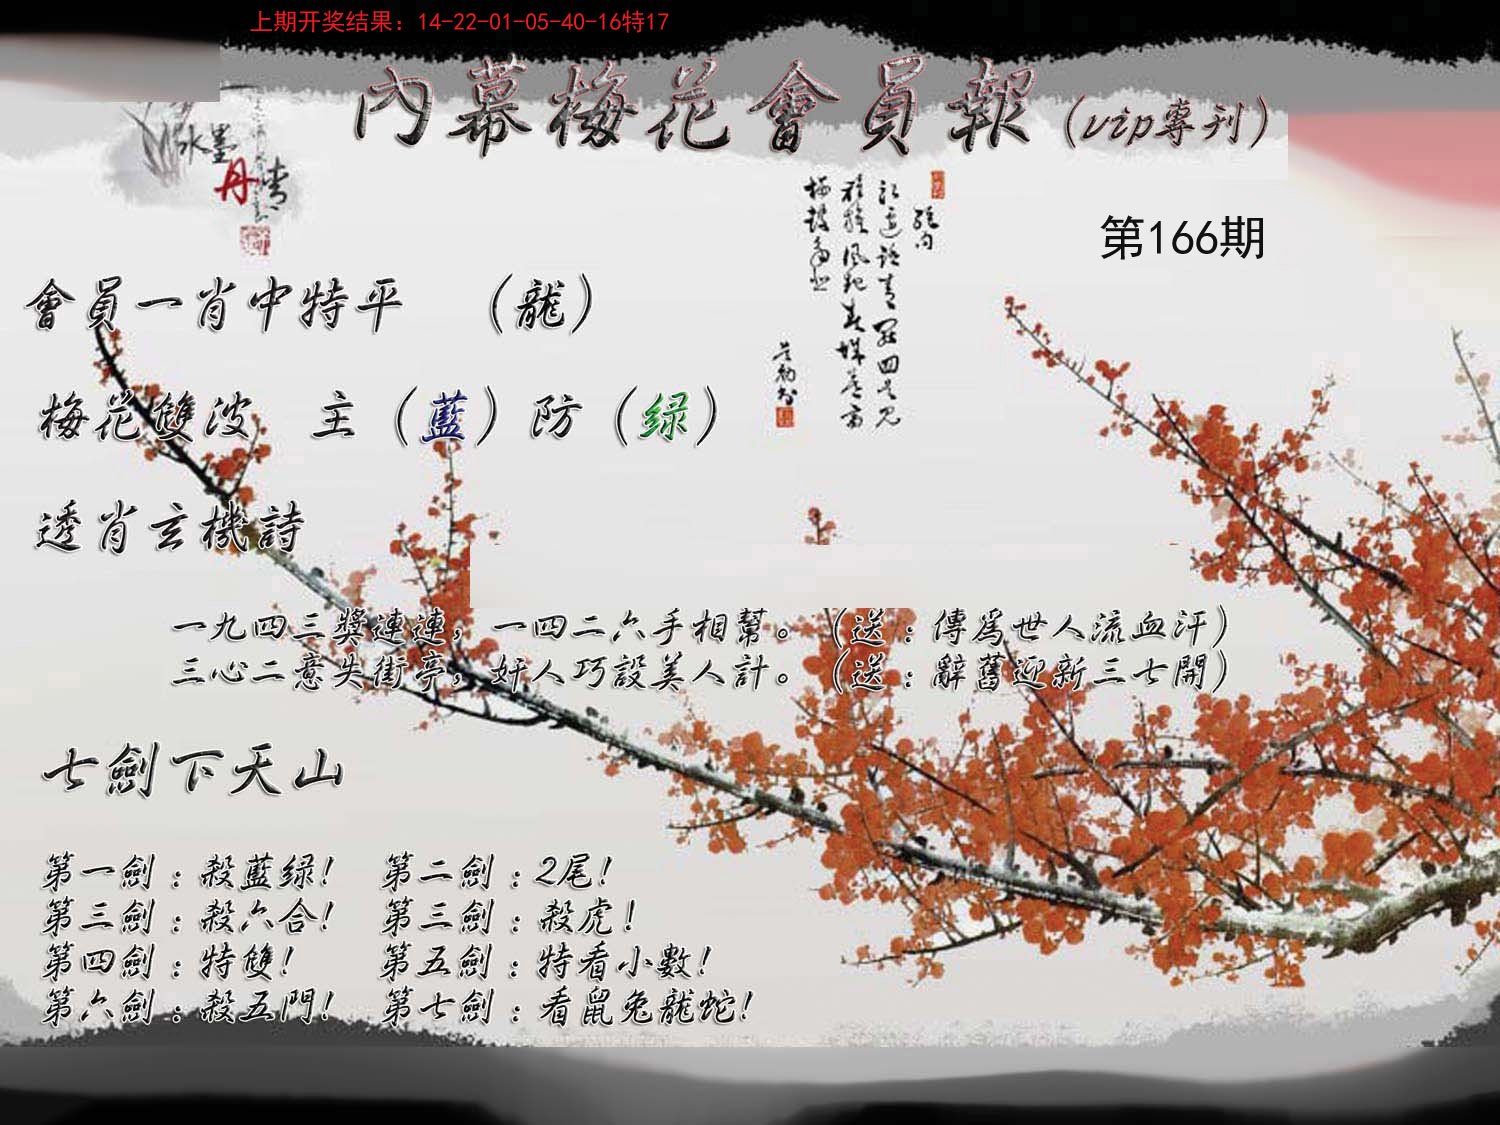 上期开奖结果：14-22-01-05-40-16特17
內幕梅花會員報（vip專刊）
水墨
丹青
第166期
會員一肖中特平　（龍）
梅花雙波　主（藍）防（绿）
透肖玄機詩
一九四三獎連連，一四二六手相幫。（送：傳爲世人流血汗）
三心二意失街亭，奸人巧設美人計。（送：辭舊迎新三七開）
七劍下天山
第一劍：殺藍绿！　第二劍：2尾！
第三劍：殺六合！　第三劍：殺虎！
第四劍：特雙！　第五劍：特看小數！
第六劍：殺五門！　第七劍：看鼠兔龍蛇！